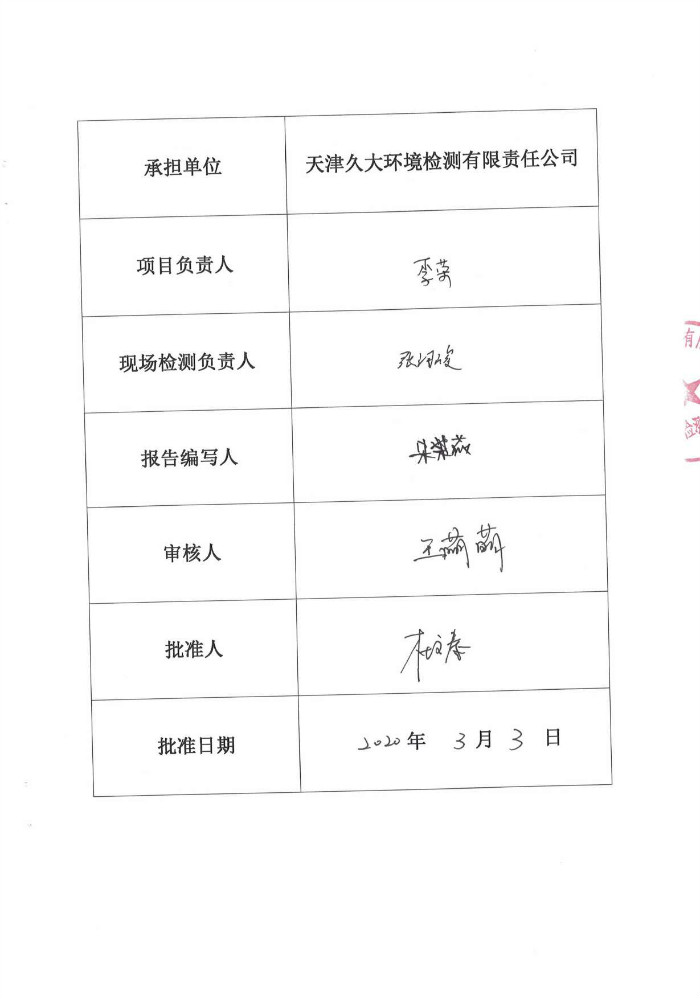 承担单位 天津久大环境检测有限责任公司
项目负责人 李荣
现场检测负责人
报告编写人
审核人 王萌萌
批准人
批准日期 2020年 3月 3日
有